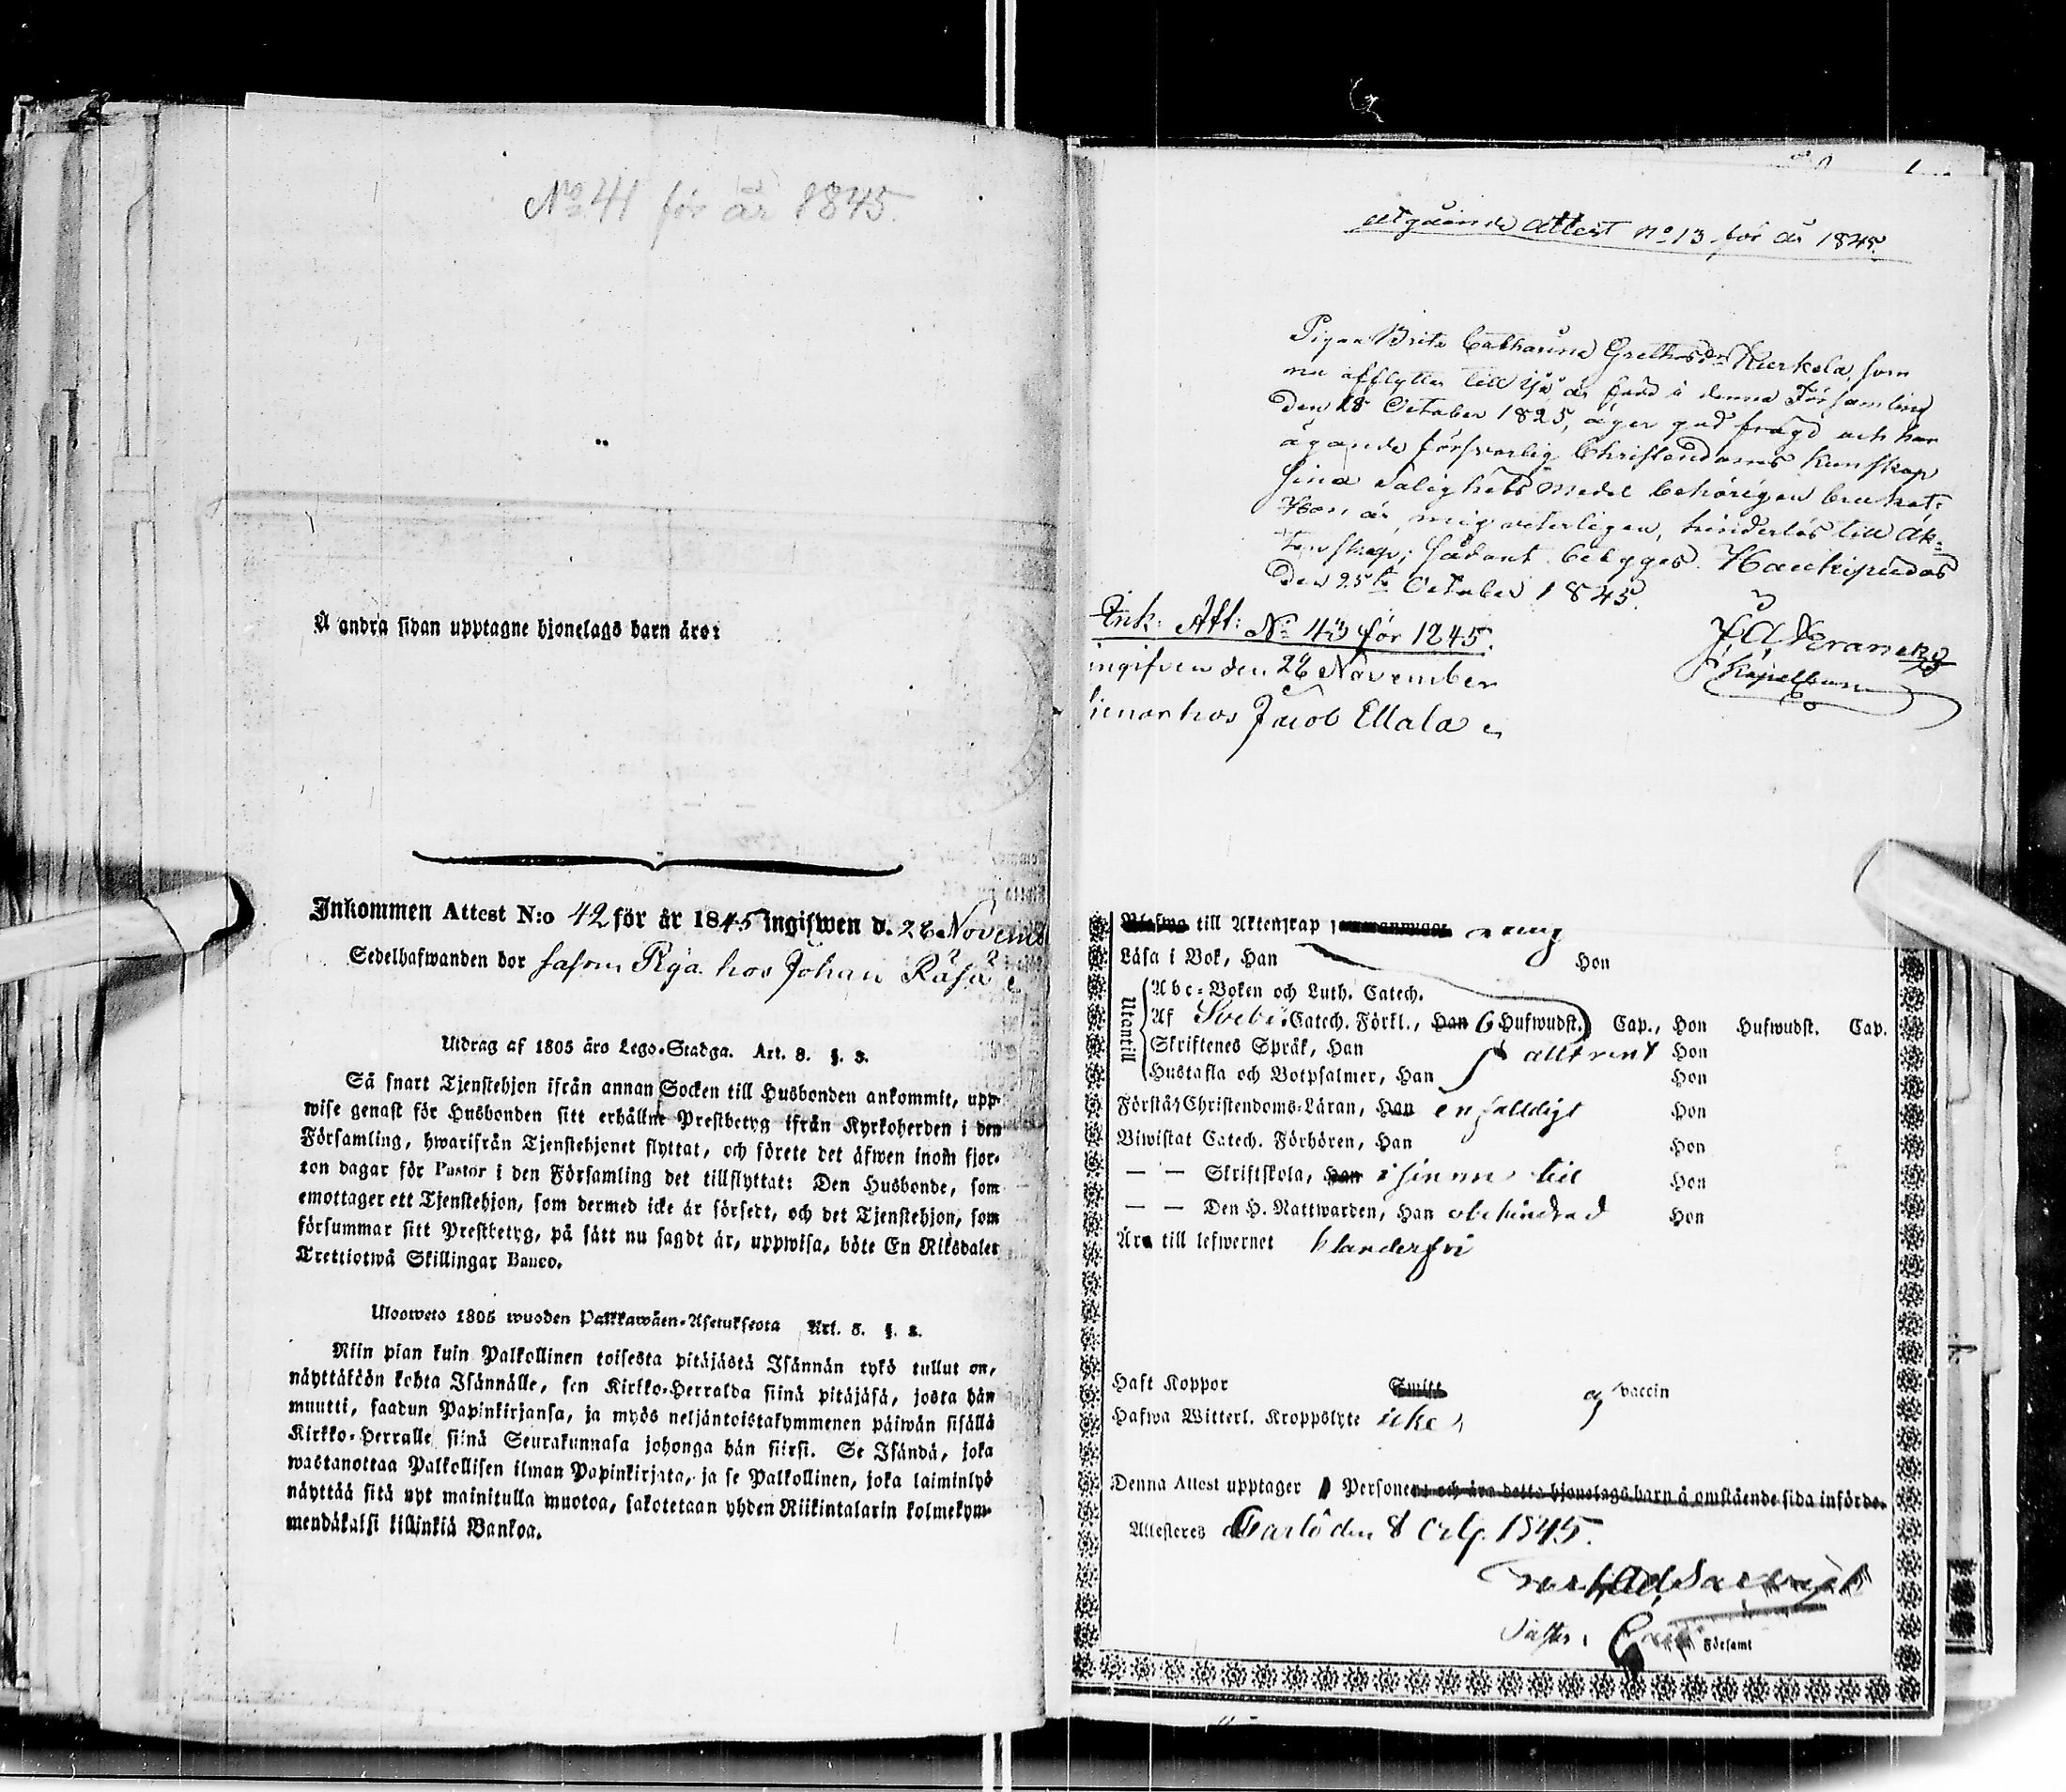 No 41 för år 1845.
Å andra sidan upptagne hjonelags barn äro:
Inkommen Attest N:o 42 för år 1845 ingifwen d. 28 Novemb
Sedelhafwanden bor såsom Piga hos Johan Räsä
Utdrag af 1805 års Lego-Stadga. Art. 8. §. 3.
Så snart Tjenstehjon ifrån annan Socken till Husbonden ankommit, upp-
wise genast för Husbonden sitt erhållne Prestbetyg ifrån Kyrkoherden i den
Församling, hwarifrån Tjenstehjonet flyttat, och förete det äfwen inom fjor-
ton dagar för Pastor i den Församling det tillflyttat: Den Husbonde, som
emottager ett Tjenstehjon, som dermed icke är försedt, och det Tjenstehjon, som
försummar sitt Prestbetyg, på sätt nu sagdt är, uppwisa, böte En Riksdaler
Trettiotwå Skillingar Banco.
Ulosweto 1805 wuoden Palkkawäen-Asetuksesta Art. 8. §. 3.
Niin pian kuin Palkollinen toisesta pitäjästä Isännän tykö tullut on,
näyttäköön kohta Isännälle, sen Kirkko-Herralda siinä pitäjäsä, josta hän
muutti, saadun Papinkirjansa, ja myös neljäntoistakymmenen päiwän sisällä
Kirkko-Herralle siinä Seurakunnasa johonga hän siirsi. Se Isändä, joka
wastanottaa Palkollisen ilman Papinkirjata, ja se Palkollinen, joka laiminlyö
näyttää sitä nyt mainitulla muotoa, sakotetaan yhden Riikintalarin kolmekym-
mendäkaksi killinkiä Bankoa.
Utgående Attest no 13 för år 1845.
Pigan Brita Catharina Grethasdr Kurkela, som
nu afflyttar till Ijå är född i denna Församling
den 18 October 1825, äger god frägd och har
ägande försvarlig Christendoms kunskap
sina Salighets medel behörigen brukat.
Hon är, mig veterligen, hinderlös till Äk-
tenskap; sådant betygas. Haukipudas
den 25te October 1845.
Kapellan
Ink. Att: No 43 för 1845.
ingifven den 28 November
tienar hos Jacob Ellala
till Äktenskap
Läsa i Bok, Han Hon
Utantill
Abc-Boken och Luth. Catech.
Af Svebi. Catech. Förkl., Han 6 Hufwudst. Cap., Hon Hufwudst. Cap.
Skriftenes Språk, Han allt rent Hon
Hustafla och Botpsalmer, Han Hon
Förstår Christendoms-Läran, Han enfalldigt Hon
Biwistat Catech. Förhören, Han Hon
— — Skriftskola, Han i sinom tid Hon
— — Den H. Nattwarden, Han obehindrad Hon
Är till lefwernet klanderfri
Haft Koppor vaccin
Hafwa Witterl. Kroppslyte icke
Denna Attest upptager 1 Personer och äro detta hjonelags barn å omstående sida införde.
Attesteras Carlö den 8 1845.
Församl